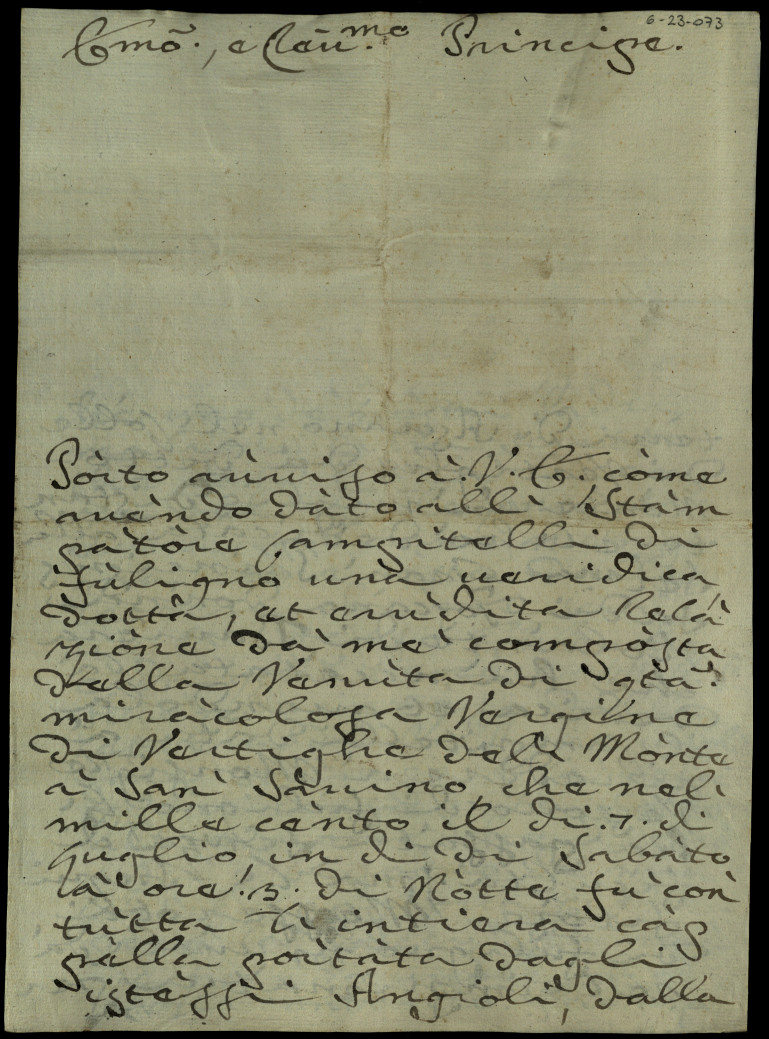 6-23-073
Emõ., e Reũ.mo Principe.
Pòrto auùuiso à. V. E. còme
auèndo dàto allì Stàm
pàtòre Campitelli di
fùligno una ueridica
dotta, et erùdita Rela
zione dà mè compòsta
della Venùta di qta.
miràcolosa Vergine
di Vertighe del Mònte
à San Sàuino, che nel
mille cènto il di. 7. di
Luglio, in di di Sabàto
à ore. 3. di Nòtte fù còn
tùtta l'intiera càp
pèlla portàta dagli
istèssi Angioli, dalla